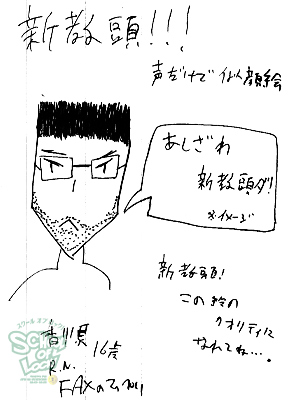 新教頭!!!
声だけで似顔絵
あしざわ
新教頭ダ!
※イメージ
新教頭!
この絵の
クオリティに
なれてね…。
香川県
16歳
R.N.
FAXの
SCHOOL
OF
LOCK!